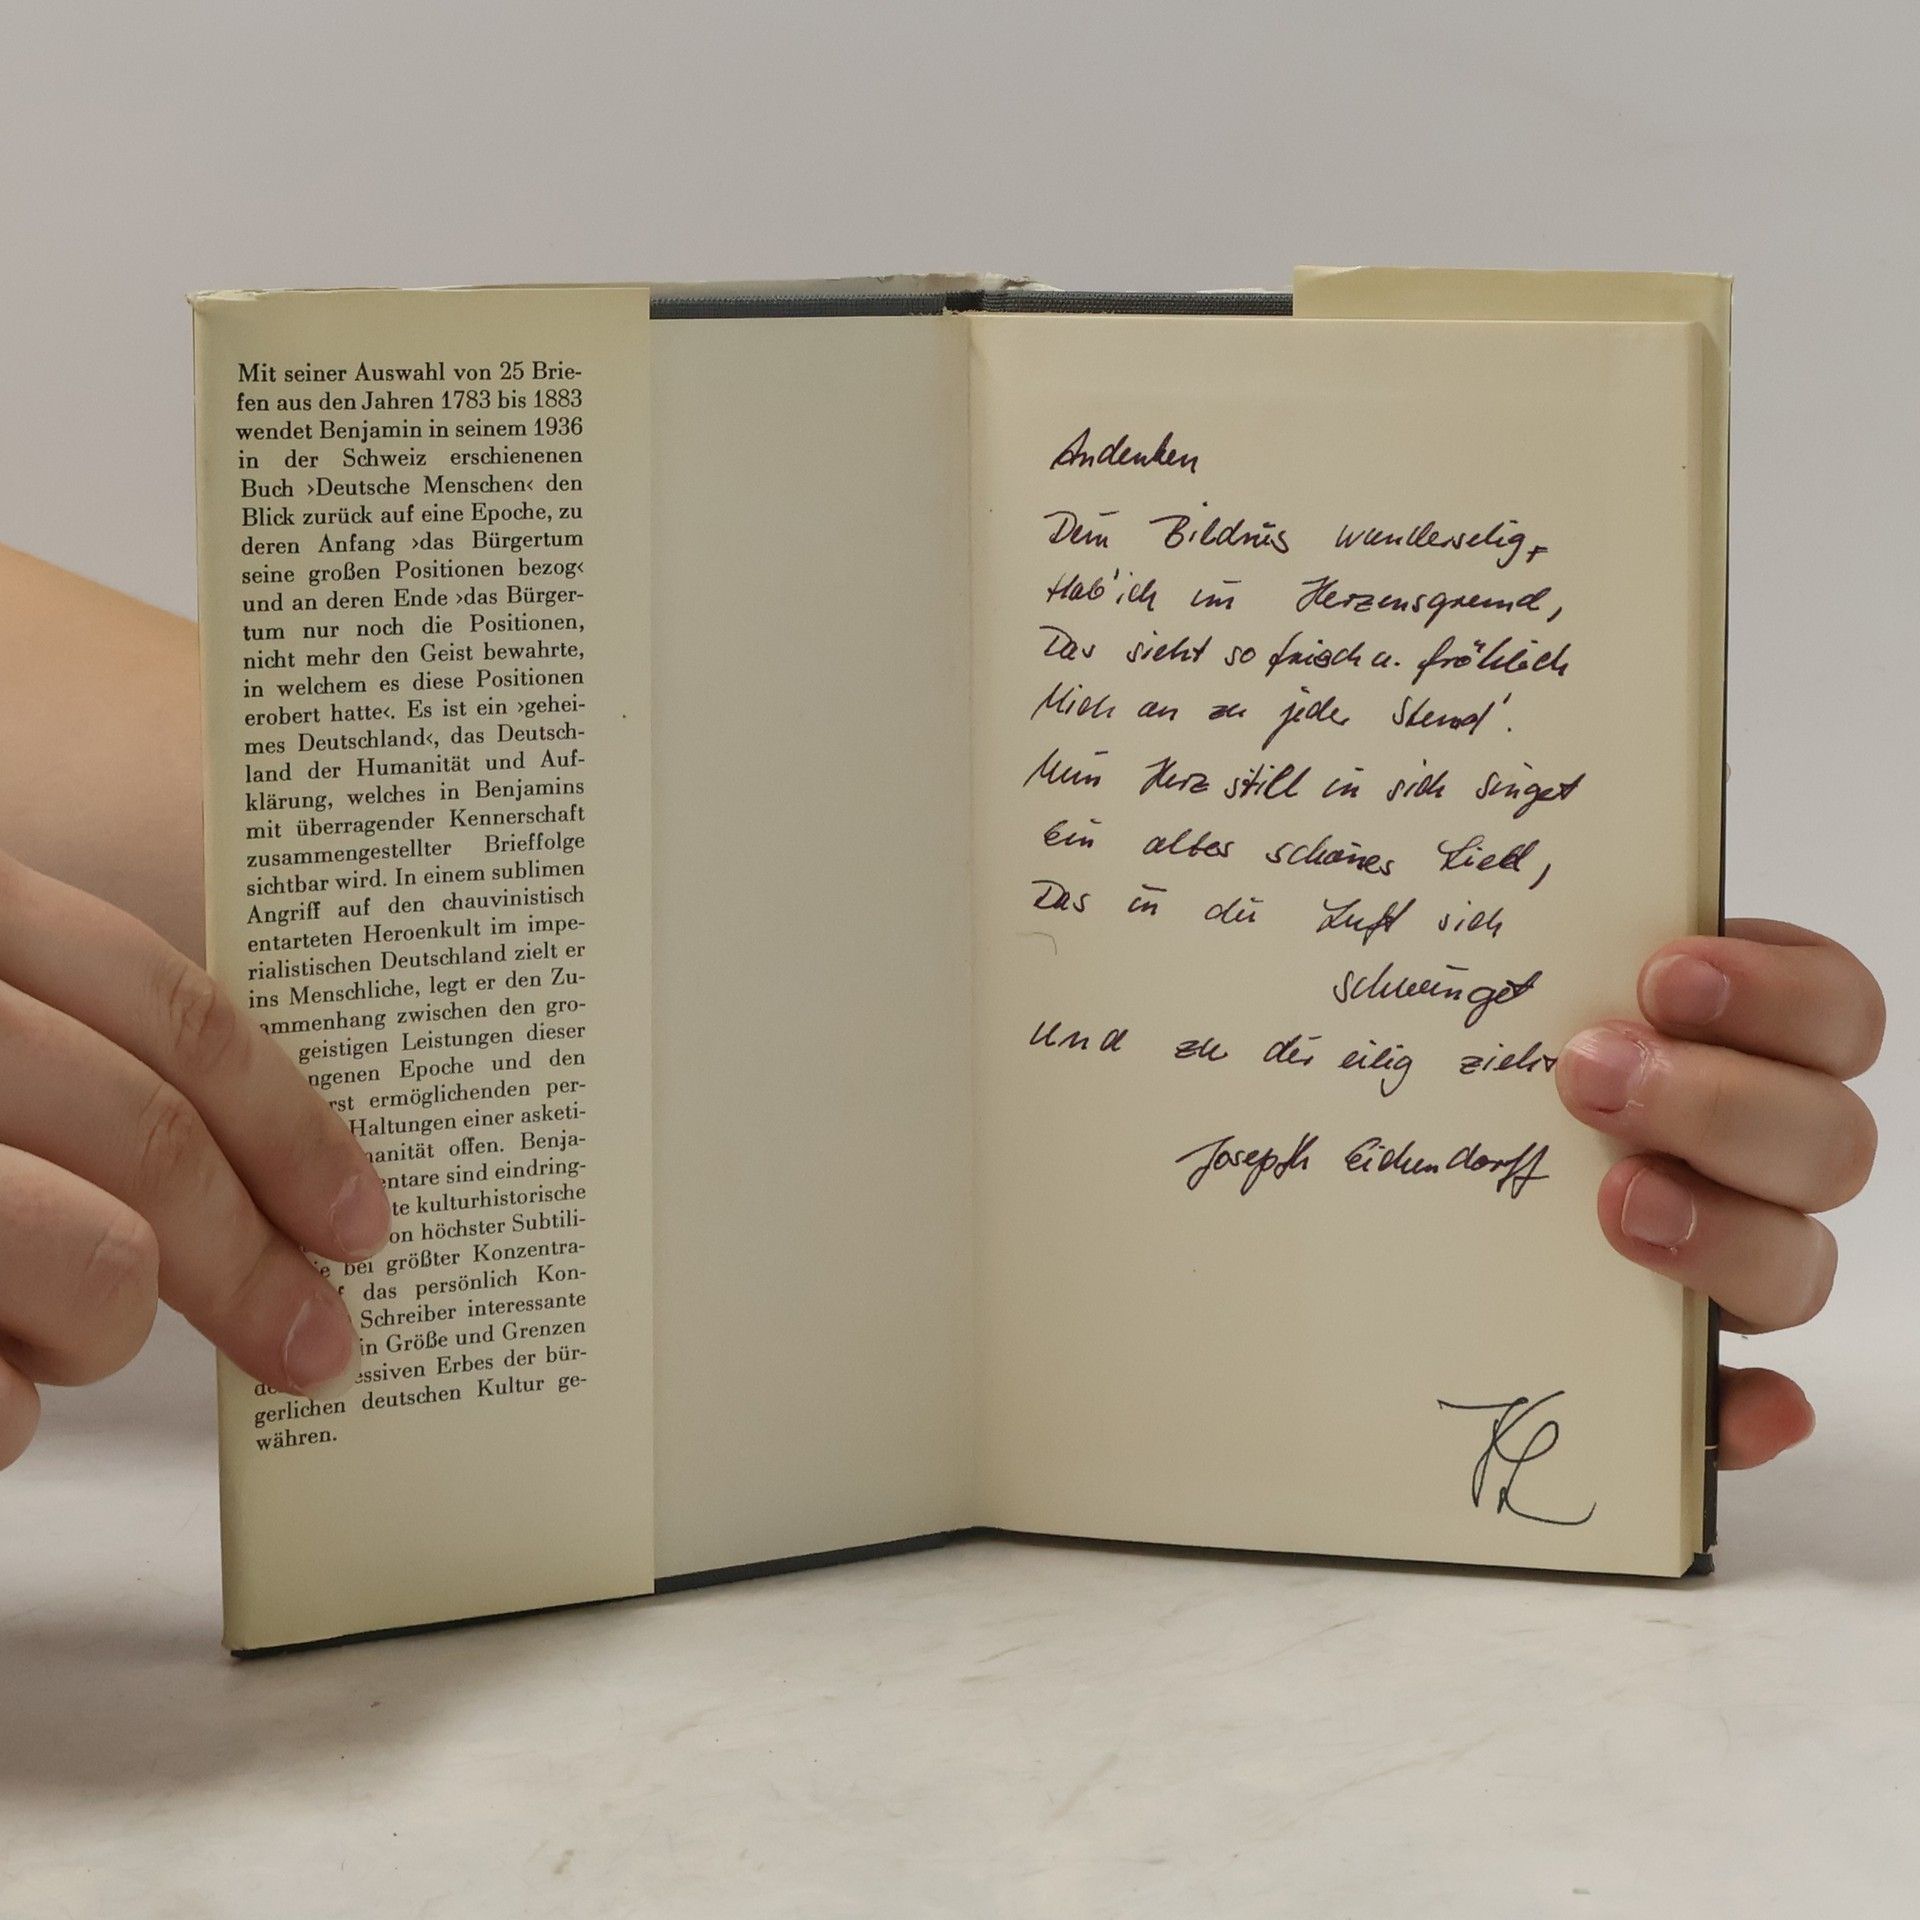 Mit seiner Auswahl von 25 Brie-
fen aus den Jahren 1783 bis 1883
wendet Benjamin in seinem 1936
in der Schweiz erschienenen
Buch ›Deutsche Menschen‹ den
Blick zurück auf eine Epoche, zu
deren Anfang ›das Bürgertum
seine großen Positionen bezog‹
und an deren Ende ›das Bürger-
tum nur noch die Positionen,
nicht mehr den Geist bewahrte,
in welchem es diese Positionen
erobert hatte‹. Es ist ein ›gehei-
mes Deutschland‹, das Deutsch-
land der Humanität und Auf-
klärung, welches in Benjamins
mit überragender Kennerschaft
zusammengestellter Brieffolge
sichtbar wird. In einem sublimen
Angriff auf den chauvinistisch
entarteten Heroenkult im impe-
rialistischen Deutschland zielt er
ins Menschliche, legt er den Zu-
ammenhang zwischen den gro-
geistigen Leistungen dieser
ngenen Epoche und den
rst ermöglichenden per-
Haltungen einer asketi-
anität offen. Benja-
entare sind eindring-
te kulturhistorische
on höchster Subtili-
ie bei größter Konzentra-
f das persönlich Kon-
Schreiber interessante
in Größe und Grenzen
de essiven Erbes der bür-
gerlichen deutschen Kultur ge-
währen.
Andenken
Dein Bildnis wunderselig,
Hab' ich im Herzensgrund,
Das sieht so frisch u. fröhlich
Mich an zu jeder Stund'.
Mein Herz still in sich singet
Ein altes schönes Lied,
Das in die Luft sich
schwinget
Und zu dir eilig zieht
Joseph Eichendorff